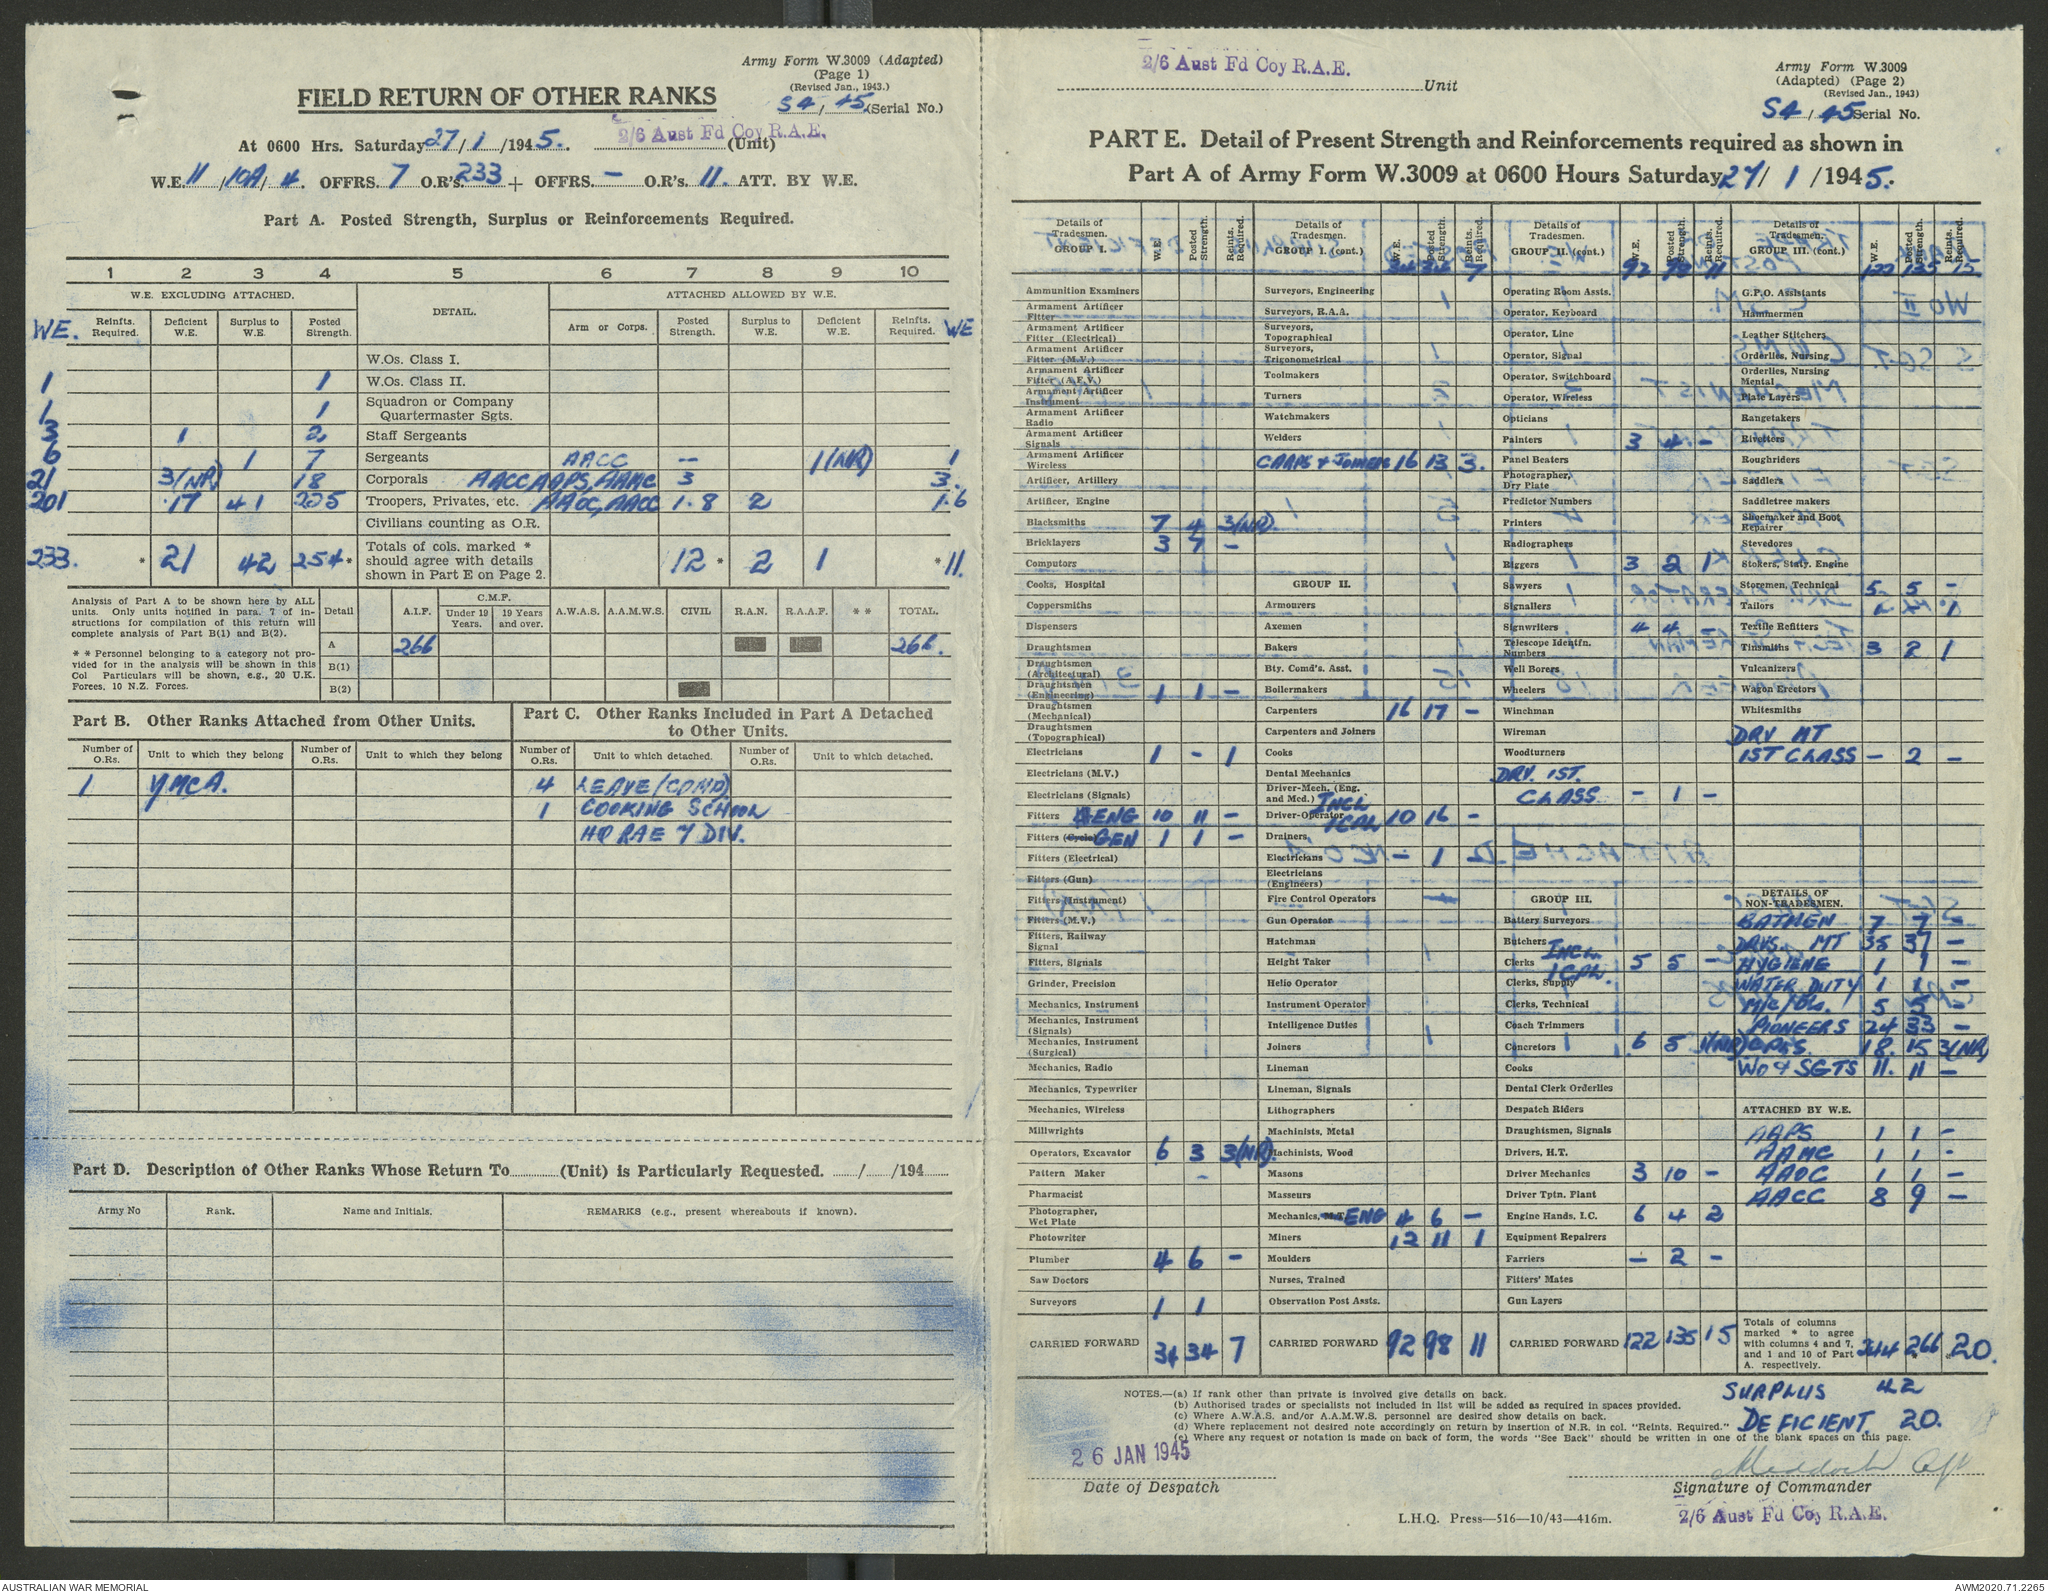 Army Form W.3009 (Adapted)
(Page 1)
(Revised Jan., 1943.)
FIELD RETURN OF OTHER RANKS
S4/45 (Serial No.)
At 0600 Hrs. Saturday 27/1/1945. 2/6 Aust Fd Coy R.A.E. (Unit)
W.E. 11/10A/4. OFFRS. 7 O.R's. 233 + OFFRS. - O.R's. 11. ATT. BY W.E.
Part A. Posted Strength, Surplus or Reinforcements Required.
1 2 3 4 5 6 7 8 9 10
W.E. EXCLUDING ATTACHED. DETAIL. ATTACHED ALLOWED BY W.E.
WE. Reinfts. Required. Deficient W.E. Surplus to W.E. Posted Strength. Arm or Corps. Posted Strength. Surplus to W.E. Deficient W.E. Reinfts. Required. WE
W.Os. Class I.
1 1 W.Os. Class II.
1 1 Squadron or Company Quartermaster Sgts.
3 1 2 Staff Sergeants
6 1 7 Sergeants AACC - 1(NR) 1
21 3(NR) 18 Corporals AACC AAPS, AAMC 3 3.
201 17 41 225 Troopers, Privates, etc. AAOC, AACC 1.8 2 1.6
Civilians counting as O.R.
233. * 21 42 254* Totals of cols. marked * should agree with details shown in Part E on Page 2. 12 * 2 1 * 11.
Analysis of Part A to be shown here by ALL units. Only units notified in para. 7 of instructions for compilation of this return will complete analysis of Part B(1) and B(2).
* * Personnel belonging to a category not provided for in the analysis will be shown in this Col Particulars will be shown, e.g., 20 U.K. Forces, 10 N.Z. Forces.
Detail A.I.F. C.M.F. Under 19 Years. 19 Years and over. A.W.A.S. A.A.M.W.S. CIVIL R.A.N. R.A.A.F. * * TOTAL.
A 266 266.
B(1)
B(2)
Part B. Other Ranks Attached from Other Units.
Part C. Other Ranks Included in Part A Detached to Other Units.
Number of O.Rs. Unit to which they belong Number of O.Rs. Unit to which they belong Number of O.Rs. Unit to which detached. Number of O.Rs. Unit to which detached.
1 YMCA. 4 LEAVE/(COMP)
1 COOKING SCHOOL
HQ RAE 7 DIV.
Part D. Description of Other Ranks Whose Return To (Unit) is Particularly Requested. / /194
Army No Rank. Name and Initials. REMARKS (e.g., present whereabouts if known).
2/6 Aust Fd Coy R.A.E. Unit
Army Form W.3009
(Adapted) (Page 2)
(Revised Jan., 1943)
S4/45 Serial No.
PART E. Detail of Present Strength and Reinforcements required as shown in
Part A of Army Form W.3009 at 0600 Hours Saturday 27/1/1945.
Details of Tradesmen. GROUP I. W.E. Posted Strength. Reints. Required.
Ammunition Examiners
Armament Artificer Fitter
Armament Artificer Fitter (Electrical)
Armament Artificer Fitter (M.V.)
Armament Artificer Fitter (A.F.V.)
Armament Artificer Instrument
Armament Artificer Radio
Armament Artificer Signals
Armament Artificer Wireless
Artificer, Artillery
Artificer, Engine
Blacksmiths 7 4 3(NR)
Bricklayers 3 7 -
Computors
Cooks, Hospital
Coppersmiths
Dispensers
Draughtsmen
Draughtsmen (Architectural)
Draughtsmen (Engineering) 1 1 -
Draughtsmen (Mechanical)
Draughtsmen (Topographical)
Electricians 1 - 1
Electricians (M.V.)
Electricians (Signals)
Fitters ENG 10 11 -
Fitters (Cycle) GEN 1 1 -
Fitters (Electrical)
Fitters (Gun)
Fitters (Instrument)
Fitters (M.V.)
Fitters, Railway Signal
Fitters, Signals
Grinder, Precision
Mechanics, Instrument
Mechanics, Instrument (Signals)
Mechanics, Instrument (Surgical)
Mechanics, Radio
Mechanics, Typewriter
Mechanics, Wireless
Millwrights
Operators, Excavator 6 3 3(NR).
Pattern Maker -
Pharmacist
Photographer, Wet Plate
Photowriter
Plumber 4 6 -
Saw Doctors
Surveyors 1 1
CARRIED FORWARD 34 34 7
Details of Tradesmen. GROUP I. (cont.) W.E. Posted Strength. Reints. Required.
34 34 7
Surveyors, Engineering
Surveyors, R.A.A.
Surveyors, Topographical
Surveyors, Trigonometrical
Toolmakers
Turners
Watchmakers
Welders
CARPS & JOINERS 16 13 3.
GROUP II.
Armourers
Axemen
Bakers
Bty. Comd's. Asst.
Boilermakers
Carpenters 16 17 -
Carpenters and Joiners
Cooks
Dental Mechanics
Driver-Mech. (Eng. and Med.)
Driver-Operator INCL 1CPL 10 16 -
Drainers
Electricians - 1
Electricians (Engineers)
Fire Control Operators
Gun Operator
Hatchman
Height Taker
Helio Operator
Instrument Operator
Intelligence Duties
Joiners
Lineman
Lineman, Signals
Lithographers
Machinists, Metal
Machinists, Wood
Masons
Masseurs
Mechanics, M.T. ENG 4 6 -
Miners 12 11 1
Moulders
Nurses, Trained
Observation Post Assts.
CARRIED FORWARD 92 98 11
Details of Tradesmen. GROUP II. (cont.) W.E. Posted Strength. Reints. Required.
92 98 11
Operating Room Assts.
Operator, Keyboard
Operator, Line
Operator, Signal
Operator, Switchboard
Operator, Wireless
Opticians
Painters 3 4 -
Panel Beaters
Photographer, Dry Plate
Predictor Numbers
Printers
Radiographers
Riggers 3 2 1
Sawyers
Signallers
Signwriters 4 4 -
Telescope Identfn. Numbers
Well Borers
Wheelers
Winchman
Wireman
Woodturners
DRV. 1ST.
CLASS - 1 -
GROUP III.
Battery Surveyors
Butchers
Clerks INCL. 1CPL. 5 5 -
Clerks, Supply
Clerks, Technical
Coach Trimmers
Concretors 6 5 1(NR)
Cooks
Dental Clerk Orderlies
Despatch Riders
Draughtsmen, Signals
Drivers, H.T.
Driver Mechanics 3 10 -
Driver Tptn. Plant
Engine Hands, I.C. 6 4 2
Equipment Repairers
Farriers - 2 -
Fitters' Mates
Gun Layers
CARRIED FORWARD 122 135 15
Details of Tradesmen. GROUP III. (cont.) W.E. Posted Strength. Reints. Required.
122 135 15
G.P.O. Assistants
Hammermen
Leather Stitchers
Orderlies, Nursing
Orderlies, Nursing Mental
Plate Layers
Rangetakers
Rivetters
Roughriders
Saddlers
Saddletree makers
Shoemaker and Boot Repairer
Stevedores
Stokers, Staty. Engine
Storemen, Technical 5 5 -
Tailors 1
Textile Refitters
Tinsmiths 3 2 1
Vulcanizers
Wagon Erectors
Whitesmiths
DRV MT
1ST CLASS - 2 -
DETAILS OF NON-TRADESMEN.
BATMEN 7 7 -
DRVS. MT 35 37 -
HYGIENE 1 1 -
WATER DUTY 1 1 -
M/C/Ols. 5 5 -
PIONEERS 24 33 -
CPLS. 18. 15 3(NR)
WO & SGTS 11. 11 -
ATTACHED BY W.E.
AAPS 1 1 -
AAMC 1 1 -
AAOC 1 1 -
AACC 8 9 -
Totals of columns marked * to agree with columns 4 and 7, and 1 and 10 of Part A. respectively. 244 266 20.
NOTES.—(a) If rank other than private is involved give details on back.
(b) Authorised trades or specialists not included in list will be added as required in spaces provided.
(c) Where A.W.A.S. and/or A.A.M.W.S. personnel are desired show details on back.
(d) Where replacement not desired note accordingly on return by insertion of N.R. in col. "Reints. Required."
(e) Where any request or notation is made on back of form, the words "See Back" should be written in one of the blank spaces on this page.
SURPLUS 42
DEFICIENT. 20.
26 JAN 1945
Date of Despatch
Signature of Commander
L.H.Q. Press—516—10/43—416m.
2/6 Aust Fd Coy R.A.E.
AUSTRALIAN WAR MEMORIAL
AWM2020.71.2265